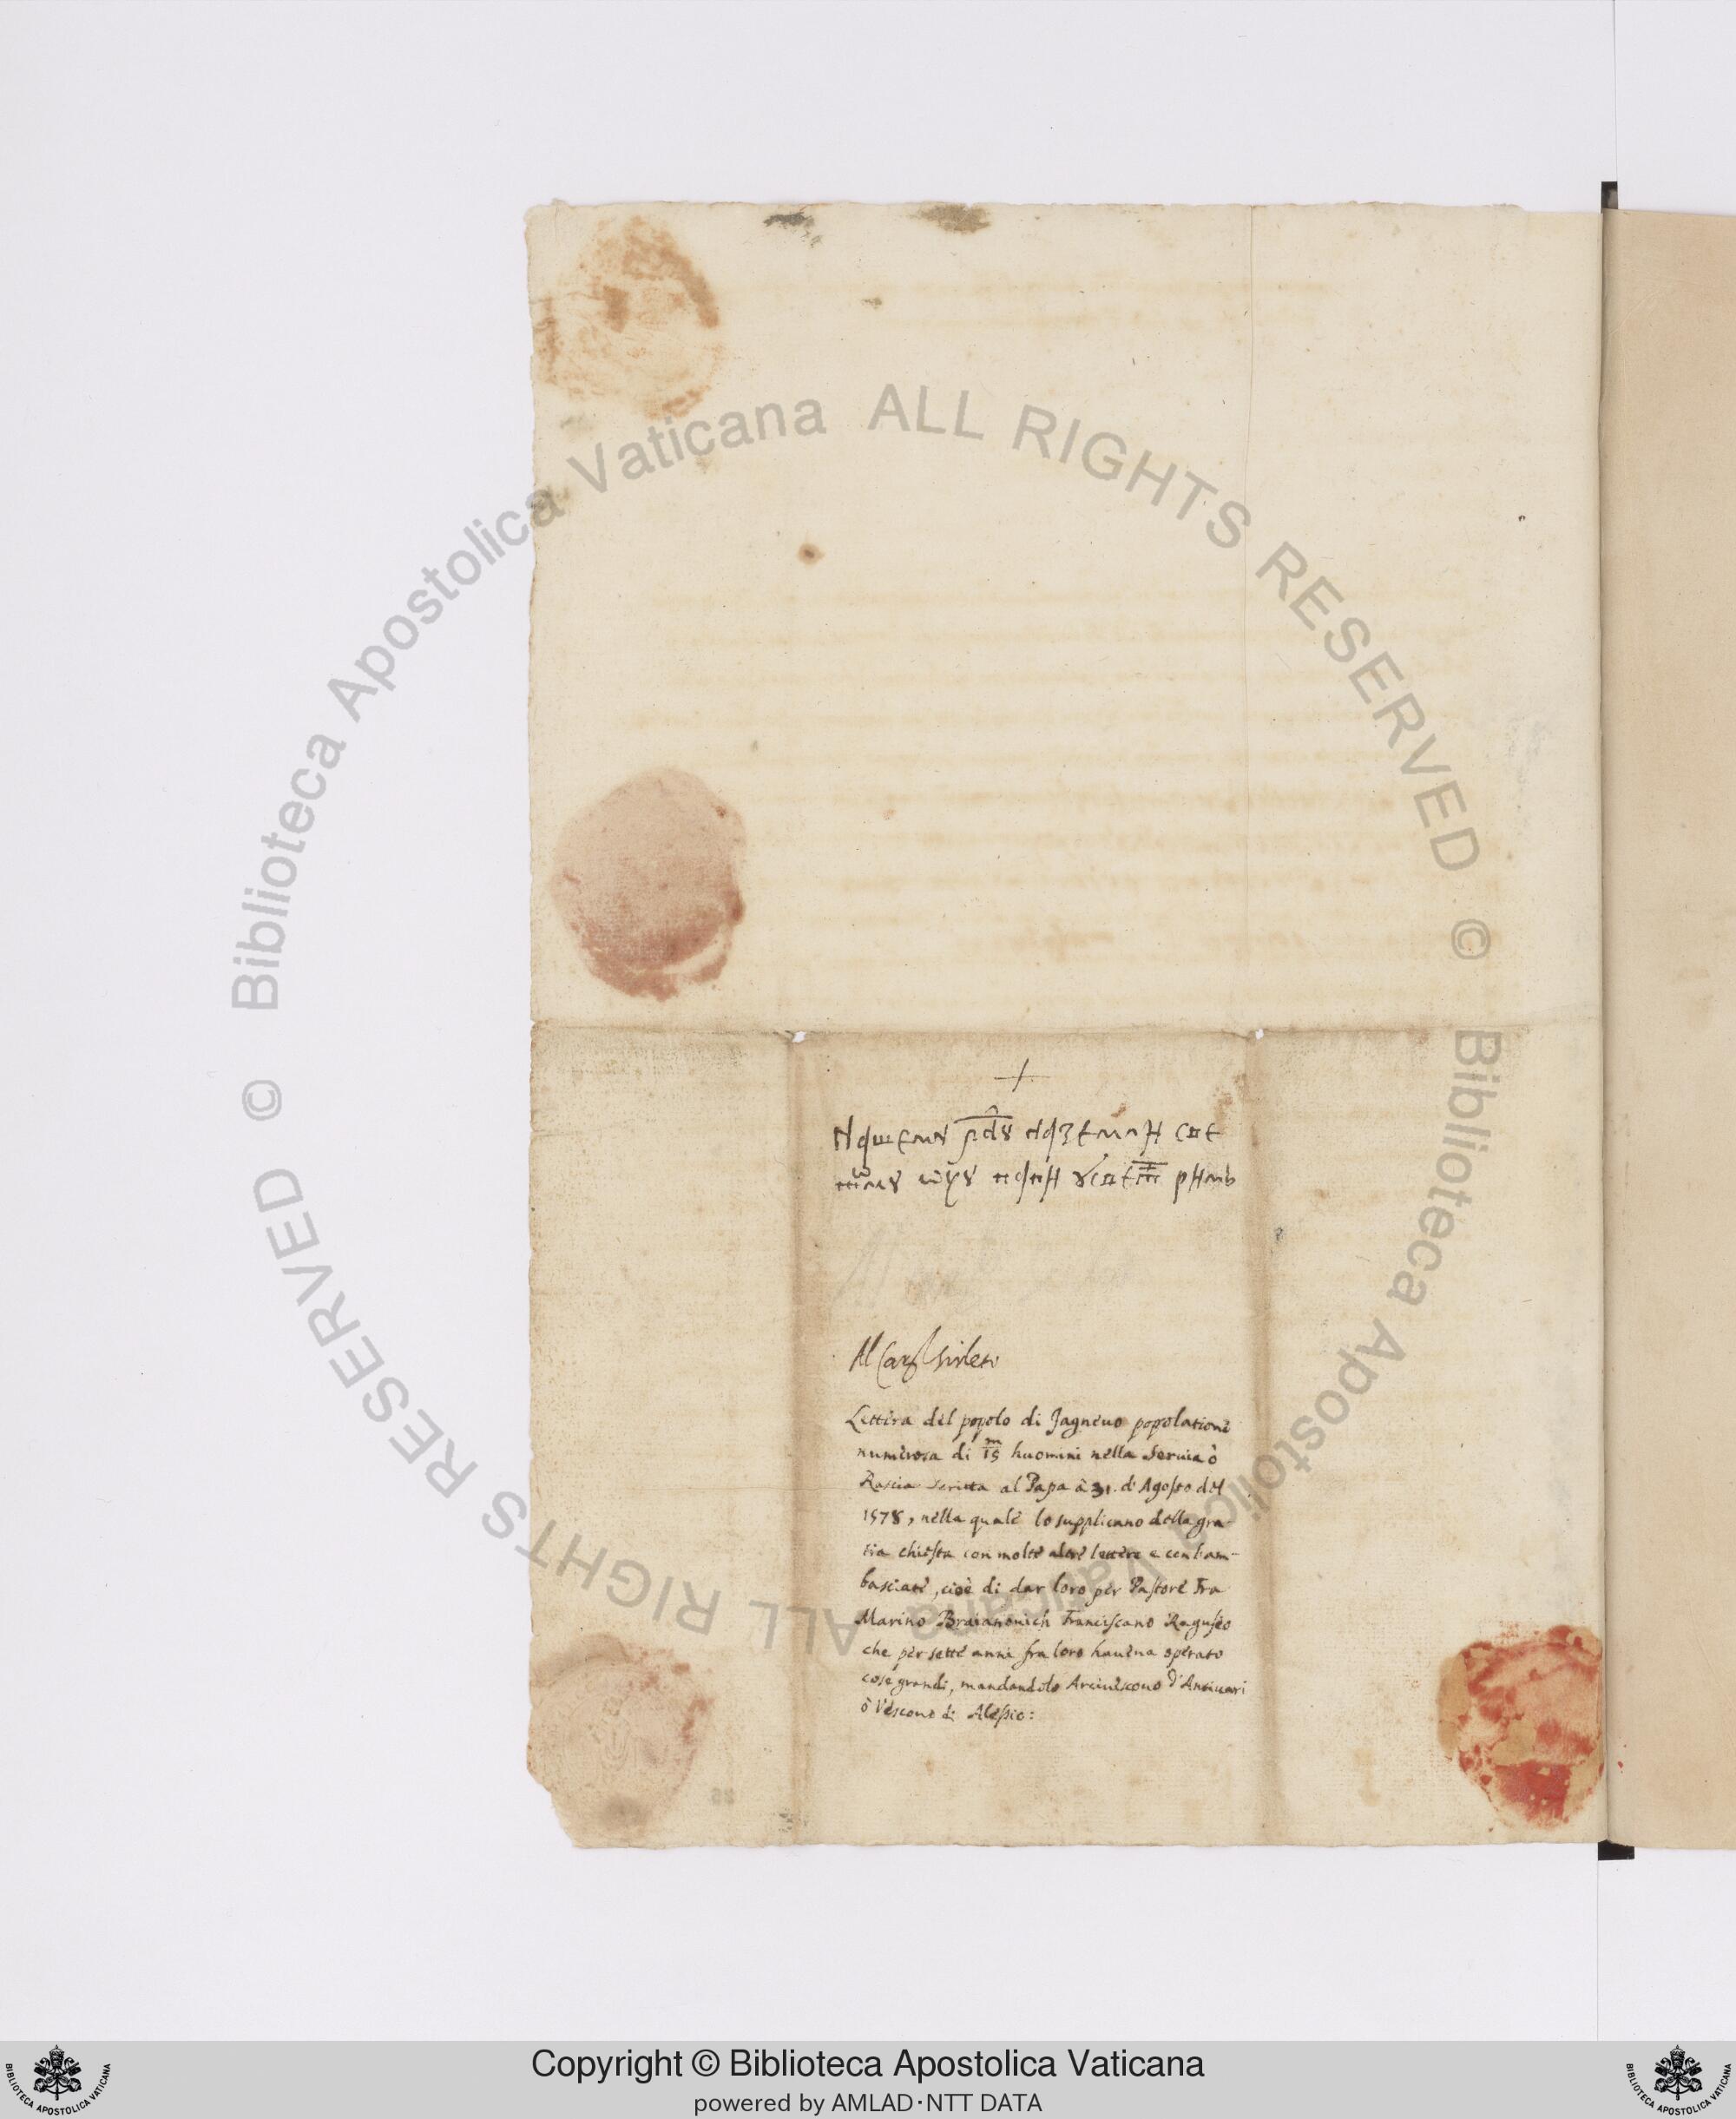 +
нашемȣ
свето
мȣ ѿцȣ папи ȣ светом римь
Al Card. Sirleto
Lettera del popolo di Jagneuo popolatione
numerosa di 15 m huomini nella Seruia ò
Rascia scritta al Papa à 31. d'Agosto del
1578, nella quale lo supplicano della gra-
tia chiesta con molte altre lettere e con l'am-
basciate, cioè di dar loro per Pastore Fra
Marino Braianouich Franciscano Raguseo
che per sette anni fra loro haueua operato
cose grandi, mandandolo Arciuescouo d'Antiuari
ò Vescouo di Alessio:
Copyright © Biblioteca Apostolica Vaticana
powered by AMLAD·NTT DATA
© Biblioteca Apostolica Vaticana ALL RIGHTS RESERVED
© Biblioteca Apostolica Vaticana ALL RIGHTS RESERVED
BIBLIOTECA APOSTOLICA VATICANA
BIBLIOTECA APOSTOLICA VATICANA